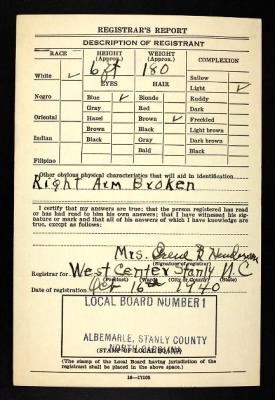 REGISTRAR'S REPORT
DESCRIPTION OF REGISTRANT
RACE HEIGHT (Approx.) WEIGHT (Approx.) COMPLEXION
6 ft 180
White ✓ Sallow
EYES HAIR Light ✓
Negro Blue ✓ Blonde Ruddy
Gray Red Dark
Oriental Hazel Brown ✓ Freckled
Brown Black Light brown
Indian Black Gray Dark brown
Bald Black
Filipino
Other obvious physical characteristics that will aid in identification
Right Arm Broken
I certify that my answers are true; that the person registered has read
or has had read to him his own answers; that I have witnessed his signa-
ture or mark and that all of his answers of which I have knowledge are
true, except as follows:
Mrs. Henderson
(Signature of registrar)
Registrar for West Center Stanly N.C
(Precinct) (Ward) (City or County) (State)
Date of registration Oct 16th 1940
LOCAL BOARD NUMBER 1
ALBEMARLE, STANLY COUNTY
NORTH CAROLINA
(STAMP OF LOCAL BOARD)
(The stamp of the Local Board having jurisdiction of the
registrant shall be placed in the above space.)
16—17105